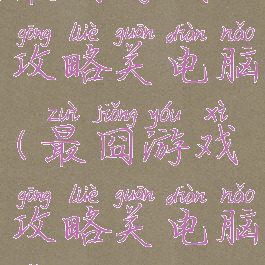 gōng lüè guān diàn nǎo
攻略关电脑
zuì jiǒng yóu xì
(最囧游戏
gōng lüè guān diàn nǎo
攻略关电脑